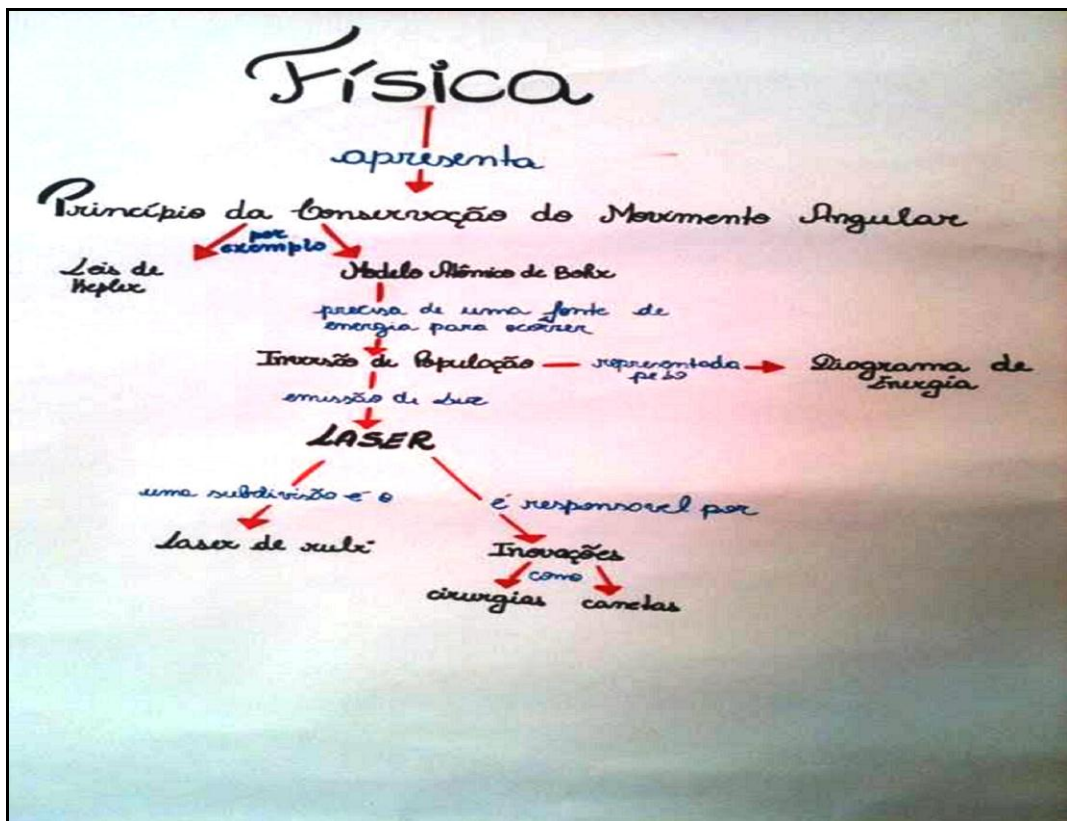 Física
apresenta
Princípio da Conservação do Movimento Angular
por
exemplo
Leis de
Kepler
Modelo Atômico de Bohr
precisa de uma fonte de
energia para ocorrer
Inversão de População
representada
pelo
Diagrama de
Energia
emissão de luz
LASER
uma subdivisão é o
é responsavel por
Laser de rubi
Inovações
como
cirurgias canetas